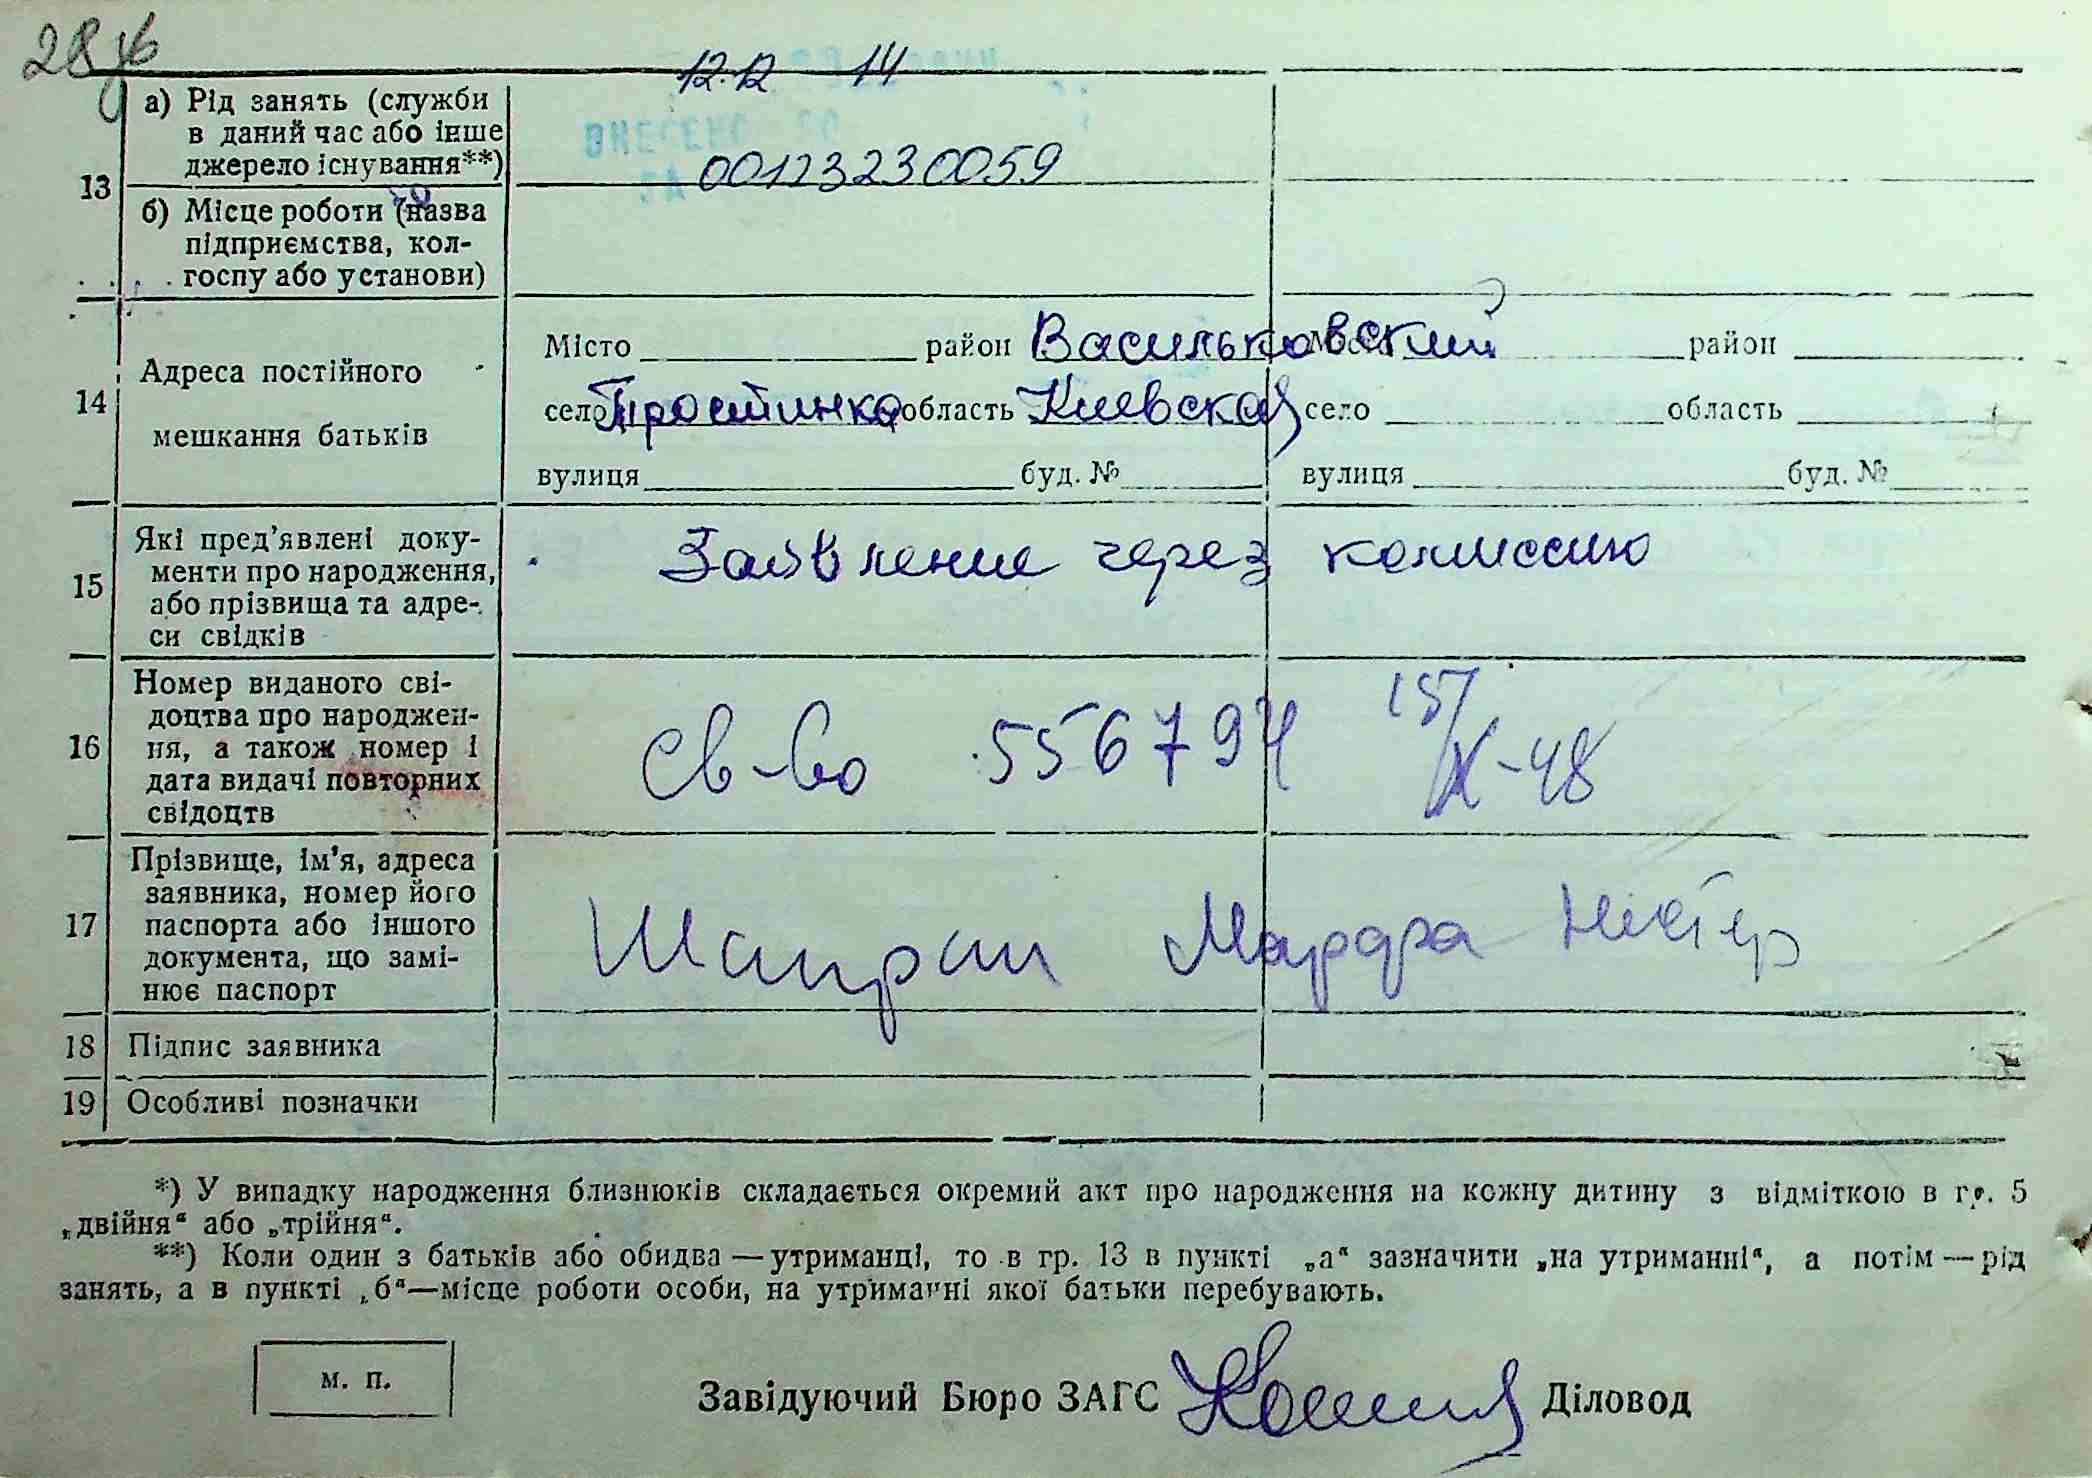 28
12.12 14
13
а) Рід занять (служби
в даний час або інше
джерело існування**)
ВНЕСЕНО ДО
00123230059
б) Місце роботи (назва
підприємства, кол-
госпу або установи)
14
Адреса постійного
мешкання батьків
Місто район Васильковский район
село область Киевская село область
вулиця буд. № вулиця буд. №
15
Які пред'явлені доку-
менти про народження,
або прізвища та адре-
си свідків
Заявление через комиссию
16
Номер виданого сві-
доцтва про народжен-
ня, а також номер і
дата видачі повторних
свідоцтв
Св-во 556794 15/X-48
17
Прізвище, ім'я, адреса
заявника, номер його
паспорта або іншого
документа, що замі-
нює паспорт
Марфа
18 Підпис заявника
19 Особливі позначки
*) У випадку народження близнюків складається окремий акт про народження на кожну дитину з відміткою в гр. 5
„двійня“ або „трійня“.
**) Коли один з батьків або обидва — утриманці, то в гр. 13 в пункті „а“ зазначити „на утриманні“, а потім — рід
занять, а в пункті „б“—місце роботи особи, на утриманні якої батьки перебувають.
м. п.
Завідуючий Бюро ЗАГС Діловод